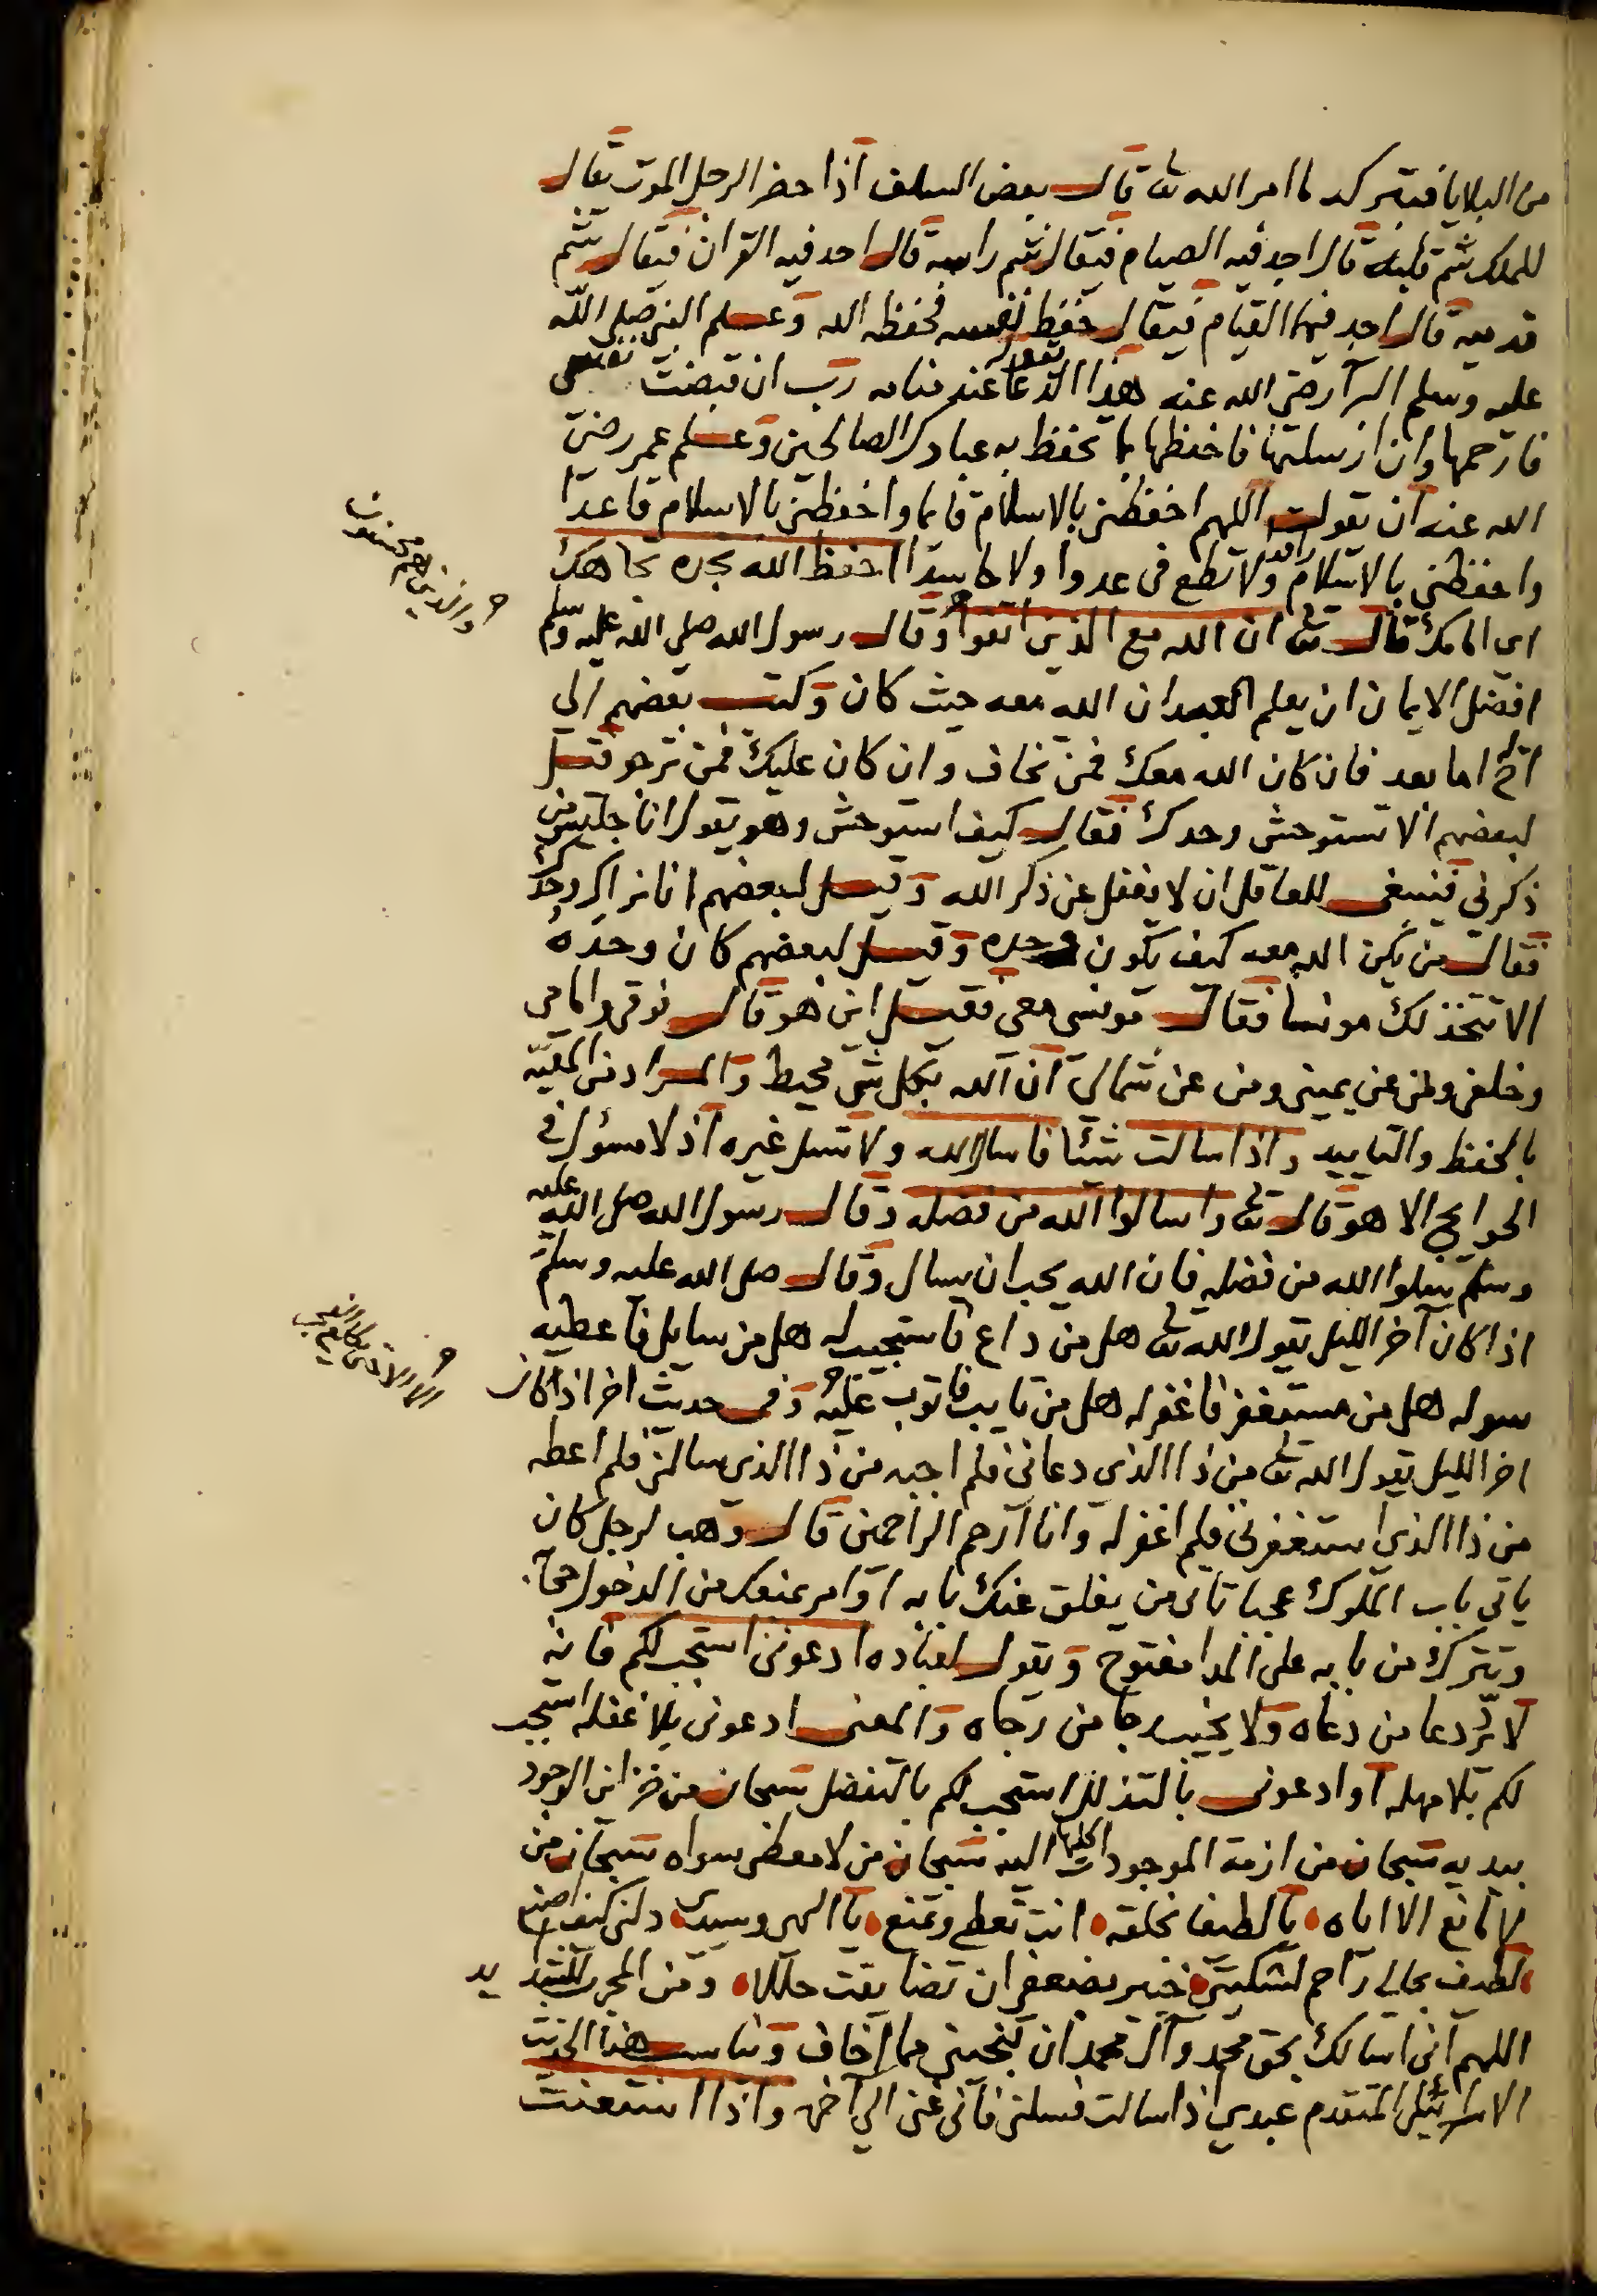 من البلايا فيتركه لما امر الله تعا قال بعض السلف اذا حضر الرجل الموت يقال
للملك شم قلبه قال اجد فيه الصيام فيقال شم راسه قال اجد فيه القران فيقال شم
قدميه قال اجد فيهما القيام فيقال حفظ نفسه فحفظه الله وعلم النبي صلى الله
عليه وسلم البرآ رضي الله عنه يقول هذا الدعا عند منامه رب ان قبضت نفسي
فارحمها وان ارسلتها فاحفظها بما تحفظ به عبادك الصالحين وعلم عمر رضي
الله عنه ان يقول اللهم احفظني بالاسلام قايما واحفظني بالاسلام قاعدا
واحفظني بالاسلام راقدا ولا تطع في عدوا ولا حاسدا احفظ الله تجده تجاهك
اي امامك قال تعا ان الله مع الذين اتقوا وقال رسول الله صلى الله عليه وسلم
والذين هم محسنون
افضل الايمان ان يعلم العبد ان الله معه حيث كان وكتب بعضهم الي
اخ له اما بعد فان كان الله معك فمن تخاف وان كان عليك فمن ترجو قيل
لبعضهم الا تستوحش وحدك فقال كيف استوحش وهو يقول انا جليس من
ذكرني فينبغي للعاقل ان لا يغفل عن ذكر الله وقيل لبعضهم انا نراك وحدك
فقال من يكن الله معه كيف يكون وحده وقيل لبعضهم كان وحده
الا تتخذ لك مونسا فقال مونسي معي فقيل اين هو قال فوقي وامامي
وخلفي وعن يميني ومن عن شمالي ان الله بكل شي محيط والمراد من المعية
بالحفظ والتاييد واذا سالت شيئا فاسال الله ولا تسل غيره اذ لا مسؤل في
الحوايج الا هو قال تعا واسالوا الله من فضله وقال رسول الله صلى الله عليه
وسلم سلوا الله من فضله فان الله يحب ان يسال وقال صلى الله عليه وسلم
اذا كان آخر الليل يقول الله تعا هل من داع فاستجيب له هل من سايل فاعطيه
سوله هل من مستغفر فاغفر له هل من تايب فاتوب عليه وفي حديث اخر اذا كان
اخر الليل يقول الله تعا من ذا الذي دعاني فلم اجبه من ذا الذي سالني فلم اعطه
من ذا الذي استغفرني فلم اغفر له وانا ارحم الراحمين قال وهب لرجل كان
ياتي باب الملوك عجبا تاتي من يغلق عنك بابه او امر بمنعك من الدخول
وتترك من بابه على المدا مفتوح ويقول لعباده ادعوني استجب لكم فانه
لا يرد دعا من دعاه ولا يخيب رجا من رجاه والمعنى ادعوني بلا غفلة استجب
لكم بلا مهلة او ادعوني بالتذلل استجب لكم بالتفضل سبحان من خزاين الوجود
بيديه سبحان من ازمة الموجودات كلها اليه سبحان من لا معطي سواه سبحان من
لا مانع الا اياه يا لطيفا بخلقه انت تعطي وتمنع يا الهي وسيدي دلني كيف اصنع
لطيف بحالي راحم لشكيتي خبير بضعفي ان تضايقت ومن المجرب للشدايد
اللهم اني اسالك بحق محمد وآل محمد ان تنجيني مما اخاف ويناسب هذا الحديث
الاسرائيلي المتقدم عبدي اذا سالت فسلني فاني غني الي آخره واذا استعنت